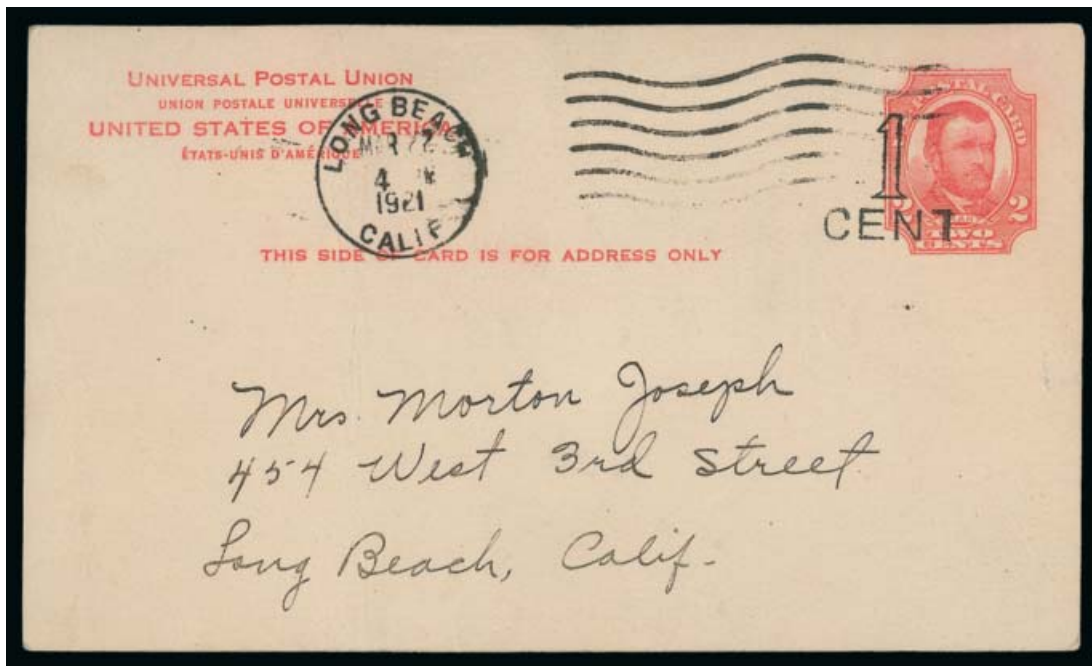 UNIVERSAL POSTAL UNION
UNION POSTALE UNIVERSELLE
UNITED STATES OF AMERICA
ÉTATS-UNIS D'AMÉRIQUE
LONG BEACH
MAR 22
4
1921
CALIF
POSTAL CARD
1
CENT
2 2
TWO
CENTS
THIS SIDE OF CARD IS FOR ADDRESS ONLY
Mrs. Morton Joseph
454 West 3rd Street
Long Beach, Calif.